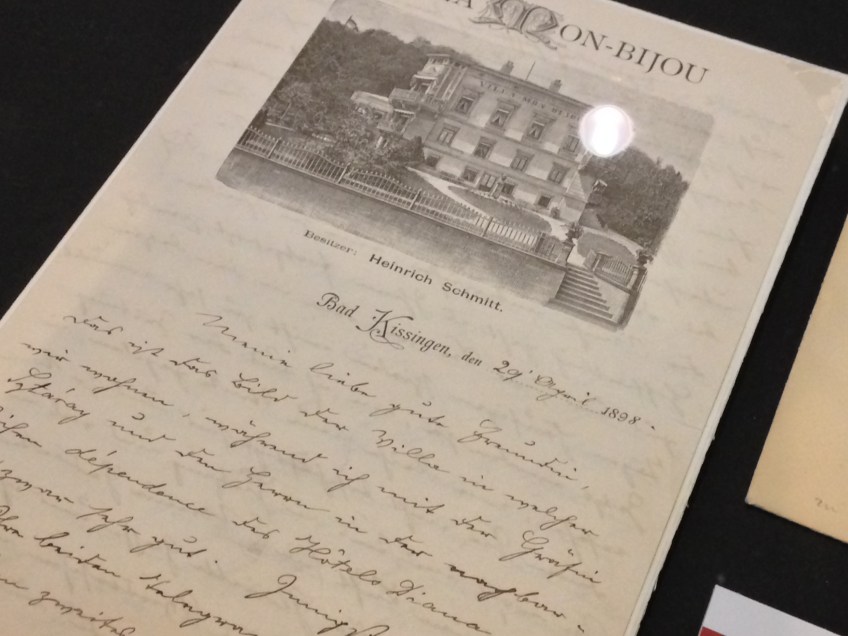 MON-BIJOU
VILLA MON BIJOU
Besitzer: Heinrich Schmitt.
Bad Kissingen, den 29' April 1898.
Meine liebe gute Freundin,
das ist das Bild der Villa in welcher
wir wohnen, während ich mit der Gräfin
Sztáray und den Herrn in der nachbar-
lichen dépendence des Hôtels Diana
zwar sehr gut.
Ihre beiden Telegra
zweites